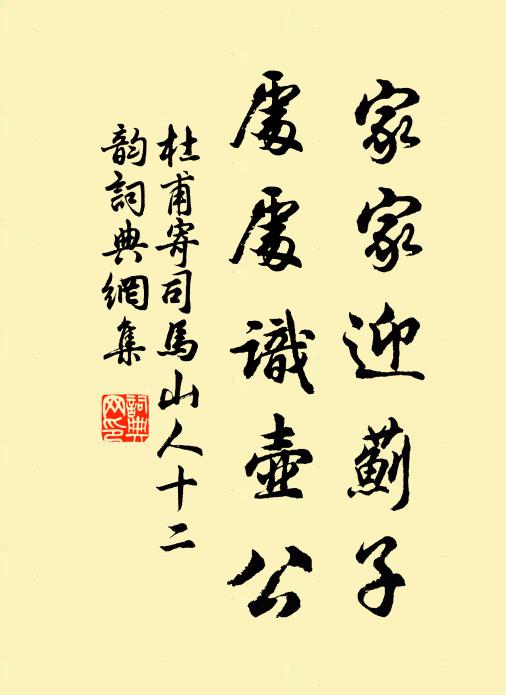 家家迎薊子
處處識壺公
杜甫寄司馬山人十二
韵詞典網集
詞典
网印